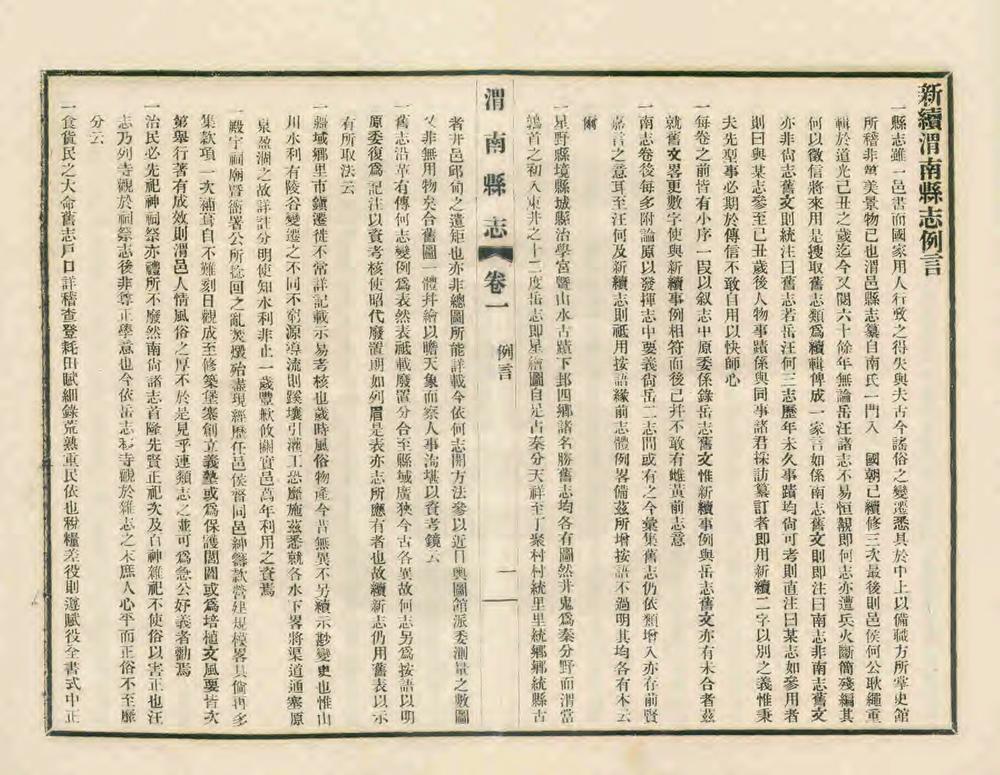 新續渭南縣志例言
一縣志雖一邑書而國家用人行政之得失與夫古今謠俗之變遷悉具於中上以備職方所掌史館
所稽非萬美景物已也渭邑縣志纂自南氏一門入 國朝已續修三次最後則邑侯何公耿繩重
輯於道光己丑之歲迄今又閱六十餘年無論岳汪諸志不易恒覯即何志亦遭兵火斷簡殘編其
何以徵信將來用是搜取舊志類爲續輯傳成一家言如係南志舊文則即注曰南志非南志舊文
亦非尙志舊文則統注曰舊志若岳汪何三志歷年未久事蹟均尙可考則直注曰某志如參用者
則曰與某志參至已丑歲後人物事蹟係與同事諸君採訪纂訂者即用新續二字以別之義惟秉
夫先型事必期於傳信不敢自用以快師心
一每卷之前皆有小序一段以叙志中原委係錄岳志舊文惟新續事例與岳志舊文亦有未合者茲
就舊文畧更數字使與新續事例相符而後已幷不敢有雌黃前志意
一南志卷後每多附論原以發揮志中要義尙岳二志間或有之今彙集舊志仍依類增入亦存前賢
嘉言之意耳至汪何及新續志則祗用按語緣前志體例畧備茲所增按語不過明其均各有本云
爾
一星野縣境縣城縣治學宮曁山水古蹟下邽四鄕諸名勝舊志均各有圖然井鬼爲秦分野而渭當
鶉首之初入東井之十二度岳志即星繪圖自是占秦分天祥至丁聚村村統里里統鄕鄕統縣古
渭南縣志 卷一 例言 一
者井邑邱甸之遺矩也亦非總圖所能詳載今依何志開方法參以近日輿圖館派委測量之數圖
又非無用物矣合舊圖一體幷繪以瞻天象而察人事濡堪以資考鏡云
一舊志沿革有傳何志變例爲表然表祗載廢置分合至縣城廣狹今古各異故何志另爲按語以明
原委復爲記注以資考核使昭代廢置朗如列眉是表亦志所應有者也故續新志仍用舊表以示
有所取法云
一疆域鄕里市鎭遷徙不常詳記載示易考核也歲時風俗物產今昔無異不另續示尠變更也惟山
川水利有陵谷變遷之不同不窮源導流則蹊壤引灌工恐靡施茲悉就各水下畧將渠道通塞原
泉盈涸之故詳註分明使知水利非止一歲豐歉攸關實邑萬年利用之資焉
一殿宇祠廟曁衙署公所捻回之亂焚燬殆盡現經歷任邑侯督同邑紳籌款營建規模畧具倘再多
集款項一次補葺自不難刻日觀成至修築堡寨創立義塾或爲保護閭閻或爲培植文風要皆次
第舉行著有成效則渭邑人情風俗之厚不於是見乎連類志之並可爲急公好義者勸焉
一治民必先祀神祠祭亦禮所不廢然南尙諸志首隆先賢正祀次及百神雜祀不使俗以害正也汪
志乃列寺觀於祠祭志後非尊正學意也今依岳志移寺觀於雜志之末庶人心平而正俗不至靡
分云
一食貨民之大命舊志戶口詳稽查登耗田賦細錄荒熟重民依也稅糧差役則遵賦役全書式中正